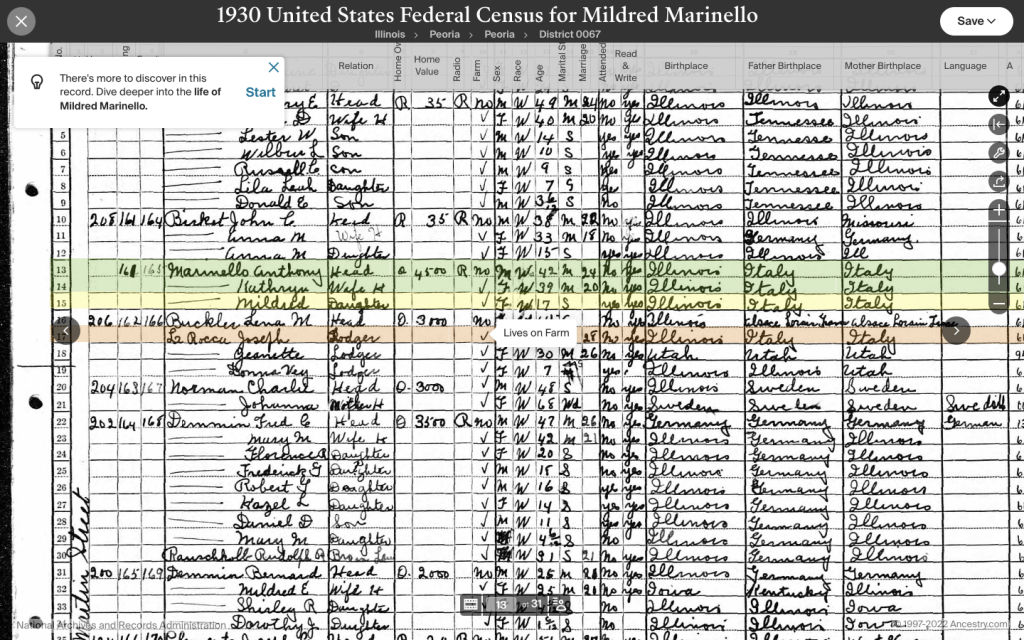 1930 United States Federal Census for Mildred Marinello
Save
Illinois > Peoria > Peoria > District 0067
There's more to discover in this record. Dive deeper into the life of Mildred Marinello.
Start
No. Relation Home Home Value Radio Farm Sex Race Age Marital Marriage Attended Read & Write Birthplace Father Birthplace Mother Birthplace Language A
Head R 35 R no M W 49 M 24 no yes Illinois Illinois Illinois
Wife H F W 40 M 20 no yes Illinois Tennessee Illinois
5 Lester W Son M W 14 S yes yes Illinois Tennessee Illinois
6 Wilbur L Son M W 10 S yes yes Illinois Tennessee Illinois
7 Russell C Son M W 9 S yes Illinois Tennessee Illinois
8 Lila Leah Daughter F W 7 S yes Illinois Tennessee Illinois
9 Donald E Son M W S no Illinois Tennessee Illinois
10 208 161 164 Birket John C. Head R 35 R no M W 38 M 22 no yes Illinois Illinois Missouri
11 Anna M Wife H F W 33 M 18 no yes Illinois Germany Germany
12 Anna M Daughter F W 15 S yes Illinois Illinois Ill
13 161 165 Marinello Anthony Head O 4500 R no M W 42 M 24 no yes Illinois Italy Italy
14 Kathryn Wife H F W 39 M 20 no yes Illinois Italy Italy
15 Mildred Daughter F W 17 S yes Illinois Italy Italy
16 206 162 166 Buckler Lena M Head O 3000 no no yes Illinois
Lives on Farm
17 La Rocca Joseph Lodger 28 no yes Illinois Italy Italy
18 Jeanette Lodger F W 30 M 26 no yes Utah Utah Utah
19 Donna Vey Lodger F W 7 yes Illinois Illinois Utah
20 204 163 167 Norman Charles Head O 3000 M W 48 S no yes Illinois Sweden Sweden
21 Johanna Mother H F W 68 Wd no yes Sweden Sweden Sweden Swedish
22 202 164 168 Demmin Fred C Head O 3500 R no M W 47 M 26 no yes Germany Germany Germany German
23 Mary M Wife H F W 42 M 21 no yes Illinois Germany Illinois
24 Florence R Daughter F W 20 S no yes Illinois Germany Illinois
25 Frederick G Daughter M W 18 S no yes Illinois Germany Illinois
26 Robert L Daughter M W 16 S yes yes Illinois Germany Illinois
27 Hazel L Daughter F W 14 S yes yes Illinois Germany Illinois
28 Daniel D Son M W 11 S yes yes Illinois Germany Illinois
29 Mary M Daughter W S no Illinois Germany Illinois
30 Rudolph W 21 S 21 no yes Illinois Germany Illinois
31 200 165 169 Demmin Bernard Head O 2000 no M W 25 M no yes Illinois Germany Germany
32 Mildred E Wife H F W 25 M no yes Iowa Kentucky Illinois
33 Shirley R Daughter no Illinois Illinois Iowa
Dorothy J Daughter F W S no Illinois Illinois Iowa
Martin Street
13 of 31
National Archives and Records Administration
© 1997-2022 Ancestry.com